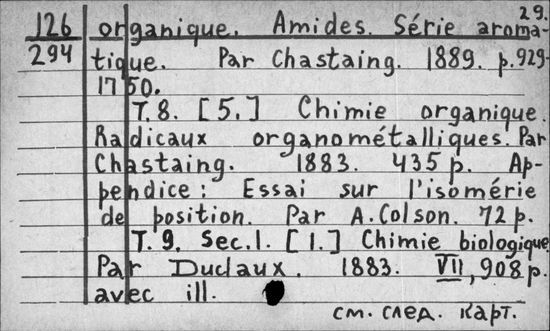 29.
126 organique. Amides. Série aroma-
294 tique. Par Chastaing. 1889. p.929-
1750.
T.8. [5.] Chimie organique.
Radicaux organométalliques. Par
Chastaing. 1883. 435 p. Ap-
pendice: Essai sur l'isomérie
de position. Par A.Colson. 72 p.
T.9. Sec.1. [1.] Chimie biologique
Par Duclaux. 1883. VII, 908 p.
avec ill.
см. след. карт.